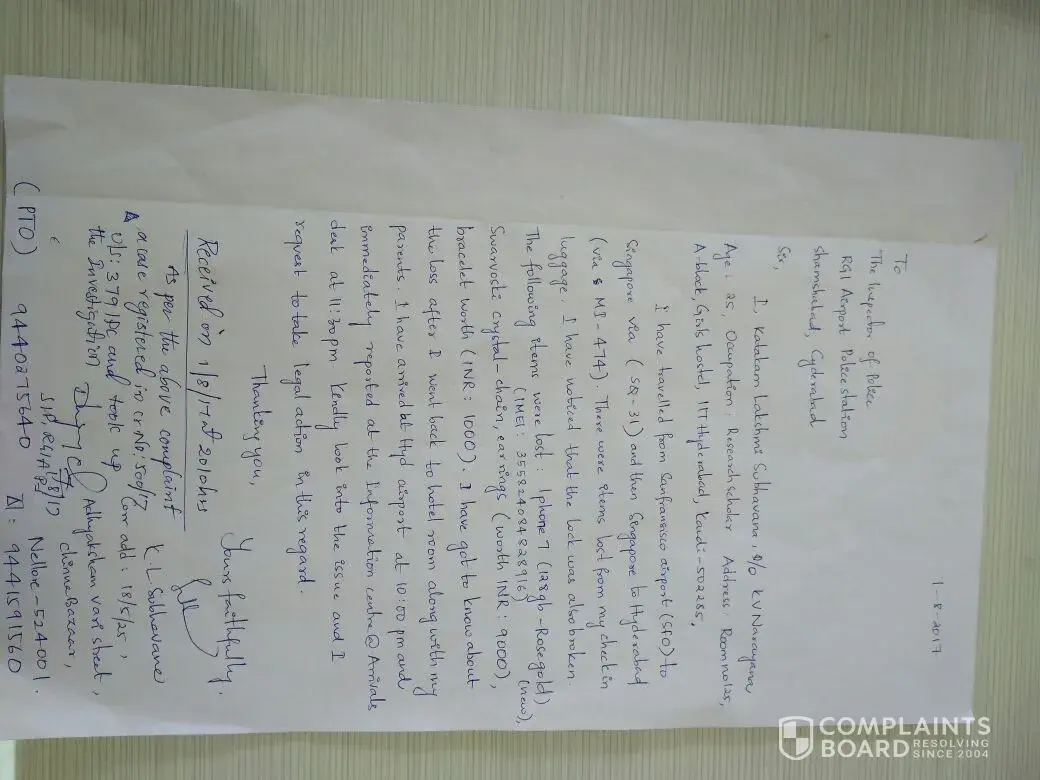 1-8-2017
To
The Inspector of Police
RGI Airport Police station
Shamshabad, Hyderabad
Sir,
I, Katakam Lakshmi Subhavana, D/o K V Narayana,
Age: 25, Occupation: Research scholar Address: Room no 125,
A-block, Girls hostel, IIT Hyderabad, Kandi-502285,
I have travelled from Sanfransisco airport (SFO) to
Singapore via (SQ-31) and then Singapore to Hyderabad
(via MI-474). There were items lost from my check in
luggage. I have noticed that the lock was also broken.
The following items were lost: Iphone 7 (128gb-Rosegold)
(IMEI: 355824084828916) (new),
Swarvoski crystal-chain, earrings (worth INR: 9000),
bracelet worth (INR: 1000). I have got to know about
the loss after I went back to hotel room along with my
parents. I have arrived at Hyd airport at 10:00 pm and
immedeately reported at the Information centre @ Arrivals
desk at 11:30pm. Kindly look into the issue and I
request to take legal action in this regard.
Thanking you,
Yours faithfully,
Received on 1/8/17 at 2010hrs
K.L Subhavana
As per the above complaint
a case registered in cr No: 509/17
u/s: 379 IPC and took up
the Investigation
Corr add: 18/5/25,
Adhyaksham vari street,
chinna Bazaar,
Nellore-524001.
(PTO) 9440275640
: 9441591560
COMPLAINTS
BOARD RESOLVING
SINCE 2004